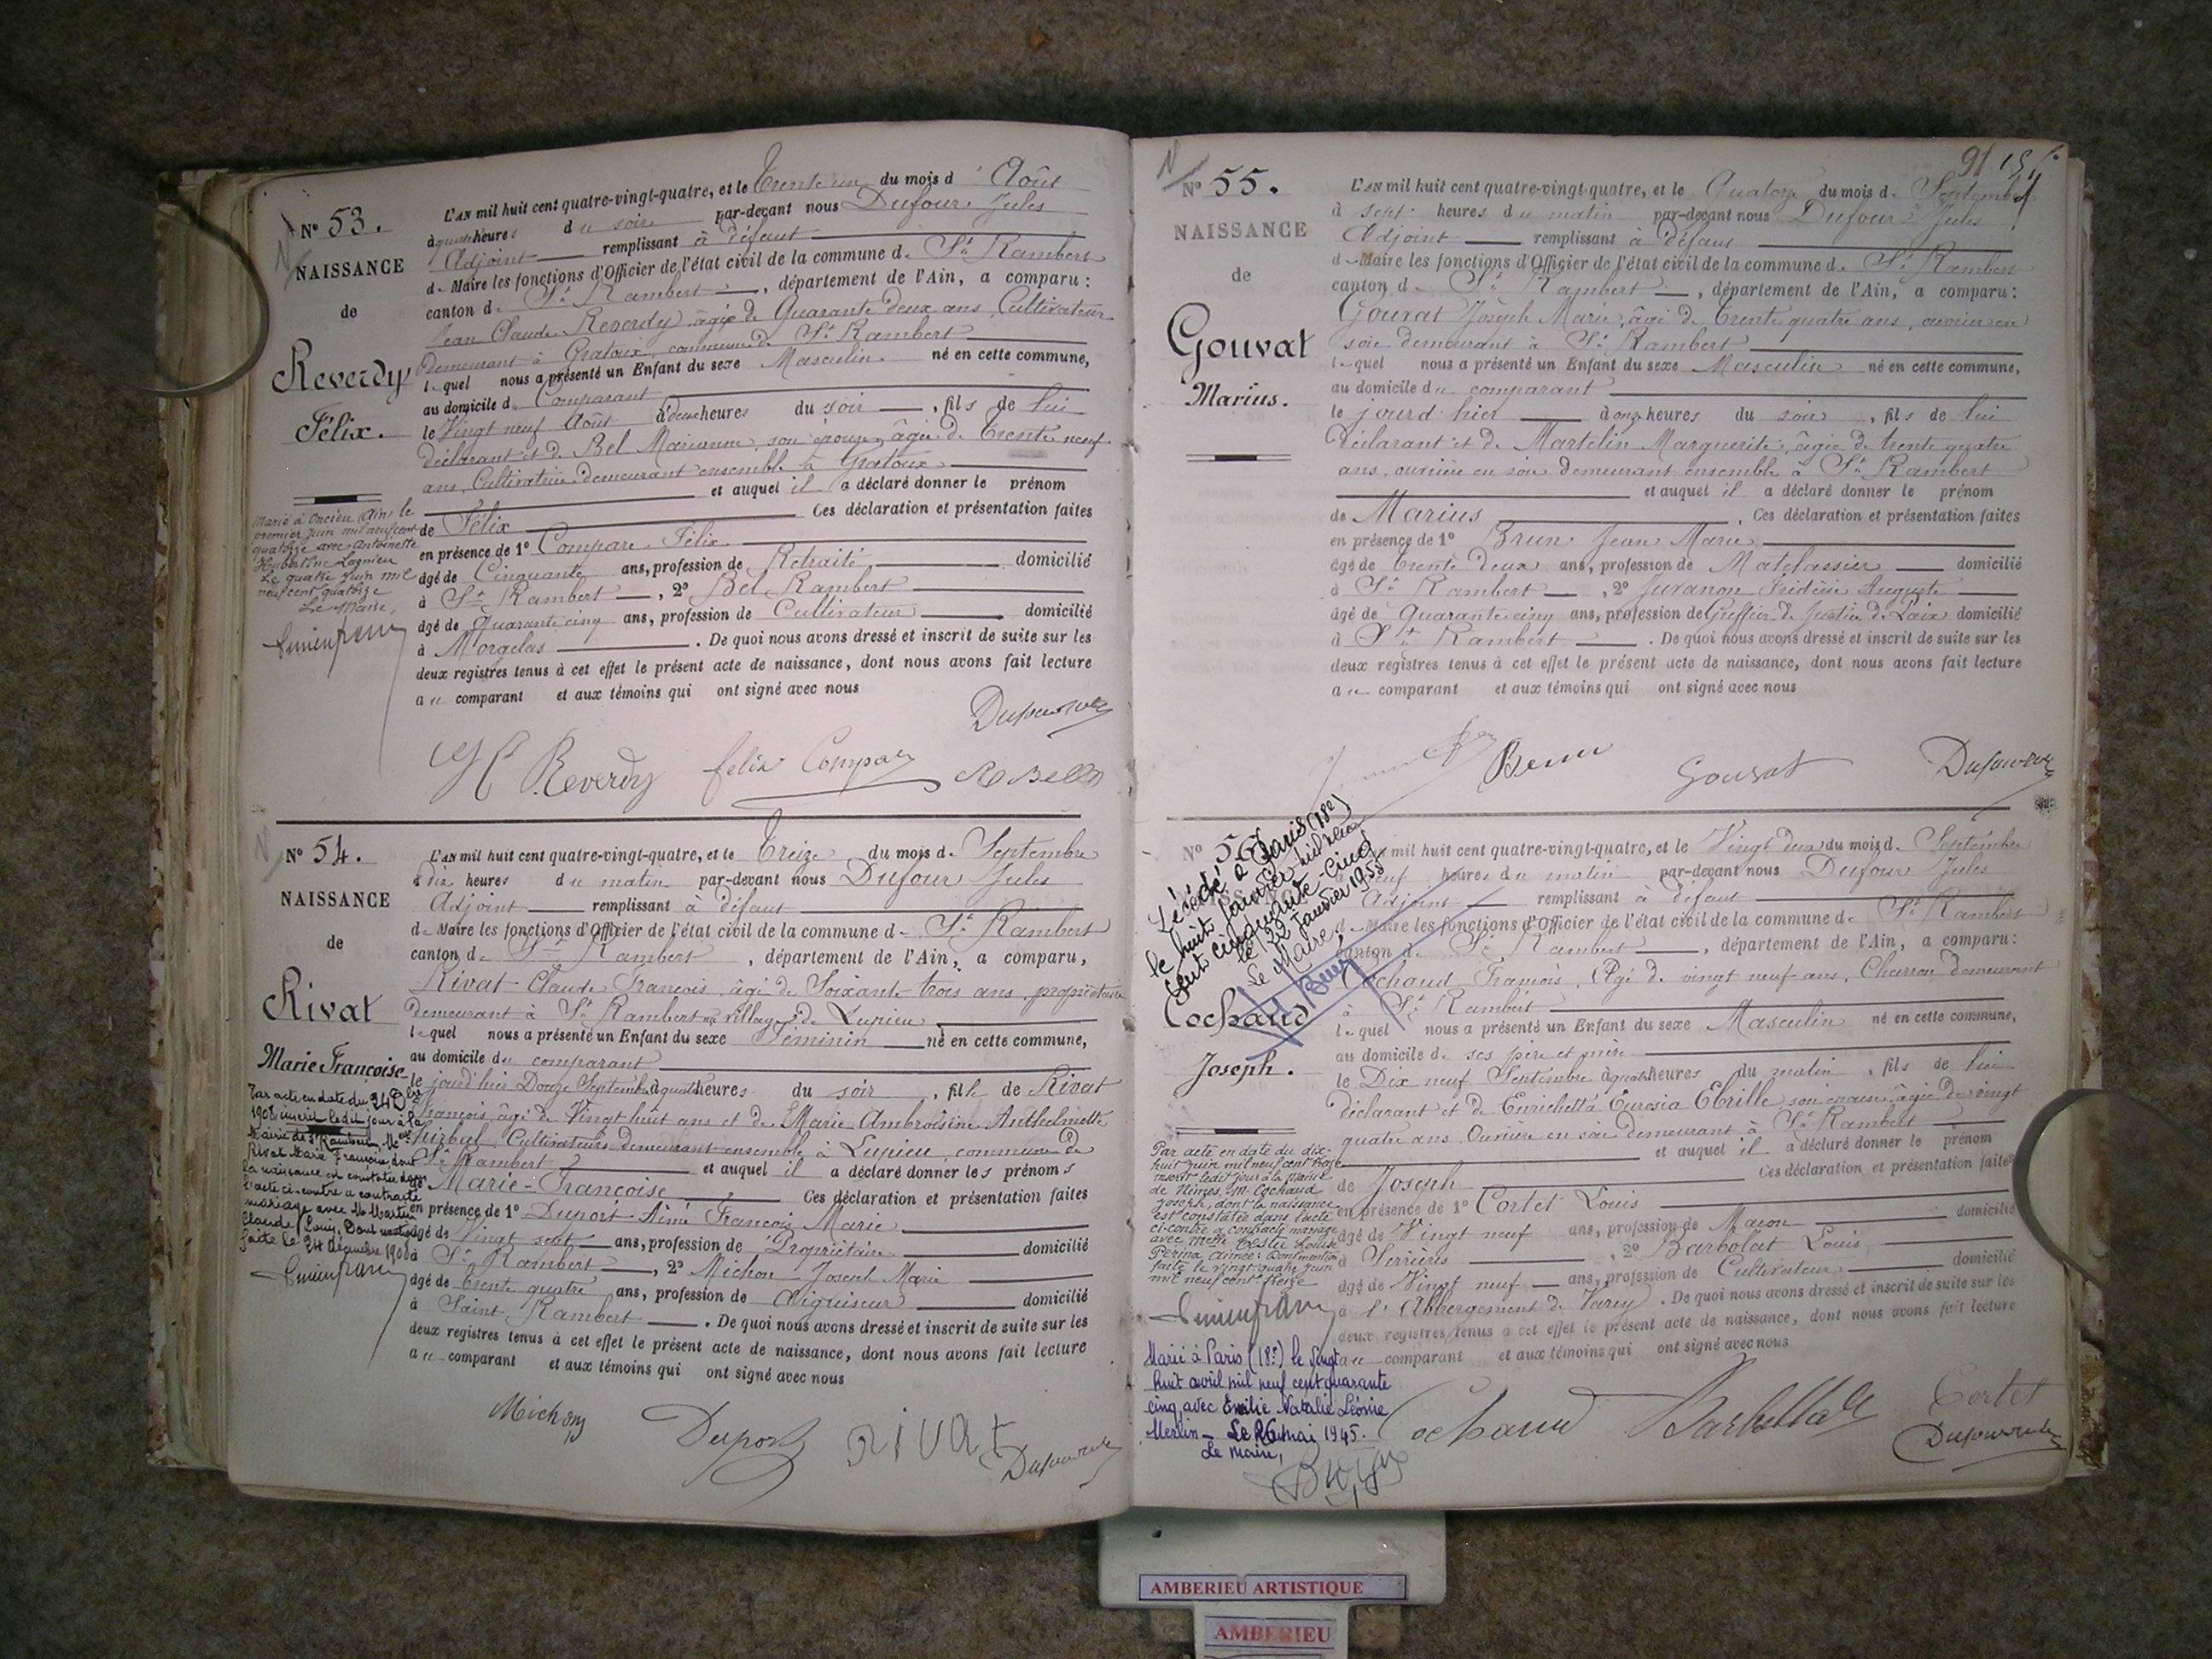 N° 53.
NAISSANCE
de
Reverdy
Félix.
L'AN mil huit cent quatre-vingt-quatre, et le Trente un du mois d'Août
à quatre heures du soir par-devant nous Dufour Jules
Adjoint remplissant à défaut
de Maire les fonctions d'Officier de l'état civil de la commune de St Rambert
canton de St Rambert, département de l'Ain, a comparu:
Jean Claude Reverdy âgé de Quarante deux ans, Cultivateur
demeurant à Gratoux, commune de St Rambert
lequel nous a présenté un Enfant du sexe Masculin né en cette commune,
au domicile du Comparant
le Vingt neuf Août à deux heures du soir, fils de lui
déclarant et de Bel Marianne, son épouse, âgée de Trente neuf
ans, Cultivatrice demeurant ensemble à Gratoux
et auquel il a déclaré donner le prénom
de Félix Ces déclaration et présentation faites
en présence de 1° Compare Félix
âgé de Cinquante ans, profession de Retraité domicilié
à St Rambert, 2° Bel Rambert
âgé de Quarante cinq ans, profession de Cultivateur domicilié
à Morgelas. De quoi nous avons dressé et inscrit de suite sur les
deux registres tenus à cet effet le présent acte de naissance, dont nous avons fait lecture
au comparant et aux témoins qui ont signé avec nous
Marié à Oncieu (Ain) le
premier juin mil neuf cent
quatorze avec Antoinette
Hubertine Lagnieu
Le quatre juin mil
neuf cent quatorze
Le Maire,
Dufour
Reverdy félix Compare R Bel
N° 54.
NAISSANCE
de
Rivat
Marie Françoise
L'AN mil huit cent quatre-vingt-quatre, et le Treize du mois de Septembre
à dix heures du matin par-devant nous Dufour Jules
Adjoint remplissant à défaut
de Maire les fonctions d'Officier de l'état civil de la commune de St Rambert
canton de St Rambert, département de l'Ain, a comparu,
Rivat Claude François âgé de Soixante trois ans, propriétaire
demeurant à St Rambert au village de Lupieu
lequel nous a présenté un Enfant du sexe Féminin né en cette commune,
au domicile du comparant
le jourd'hier Douze Septembre à quatre heures du soir, fille de Rivat
François, âgé de Vingt huit ans et de Marie Ambroisine Anthelmette
Cultivateurs demeurant ensemble à Lupieu, commune de
St Rambert et auquel il a déclaré donner les prénoms
de Marie-Françoise Ces déclaration et présentation faites
en présence de 1° Duport Aimé François Marie
âgé de Vingt sept ans, profession de Propriétaire domicilié
à St Rambert, 2° Michon Joseph Marie
âgé de trente quatre ans, profession de Aiguiseur domicilié
à Saint Rambert. De quoi nous avons dressé et inscrit de suite sur les
deux registres tenus à cet effet le présent acte de naissance, dont nous avons fait lecture
au comparant et aux témoins qui ont signé avec nous
Par acte en date du 24 Xbre
1908 inscrit ledit jour à la
Mairie de St Rambert, Melle
Rivat Marie Françoise dont
la naissance est constatée dans
l'acte ci-contre a contracté
mariage avec Mr Martin
Claude Louis. Dont mention
faite le 24 décembre 1908
Michon Duport RIVAT Dufour
91
N° 55.
NAISSANCE
de
Gouvat
Marius.
L'AN mil huit cent quatre-vingt-quatre, et le Quatorze du mois de Septembre
à sept heures du matin par-devant nous Dufour Jules
Adjoint remplissant à défaut
de Maire les fonctions d'Officier de l'état civil de la commune de St Rambert
canton de St Rambert, département de l'Ain, a comparu:
Gouvat Joseph Marie, âgé de Trente quatre ans, ouvrier en
soie demeurant à St Rambert
lequel nous a présenté un Enfant du sexe Masculin né en cette commune,
au domicile du comparant
le jourd'hier à onze heures du soir, fils de lui
déclarant et de Martelin Marguerite, âgée de trente quatre
ans, ouvrière en soie demeurant ensemble à St Rambert
et auquel il a déclaré donner le prénom
de Marius. Ces déclaration et présentation faites
en présence de 1° Brun Jean Marie
âgé de trente deux ans, profession de Matelassier domicilié
à St Rambert, 2° Juvanon Frédéric Auguste
âgé de Quarante cinq ans, profession de Greffier de Justice de Paix domicilié
à St Rambert. De quoi nous avons dressé et inscrit de suite sur les
deux registres tenus à cet effet le présent acte de naissance, dont nous avons fait lecture
au comparant et aux témoins qui ont signé avec nous
Brun Gouvat Dufour
N° 56
Décédé à Paris (18e)
le huit janvier mil neuf
cent cinquante-cinq
le 22 Janvier 1955
Le Maire,
Cochaud
Joseph.
L'AN mil huit cent quatre-vingt-quatre, et le Vingt deux du mois de Septembre
à neuf heures du matin par-devant nous Dufour Jules
Adjoint remplissant à défaut
de Maire les fonctions d'Officier de l'état civil de la commune de St Rambert
canton de St Rambert, département de l'Ain, a comparu:
Cochaud François, Agé de vingt neuf ans, Charron demeurant
à St Rambert
lequel nous a présenté un Enfant du sexe Masculin né en cette commune,
au domicile de ses père et mère
le Dix neuf Septembre à quatre heures du matin, fils de lui
déclarant et de Enrichetta Eurosia Ebrille son épouse, âgée de vingt
quatre ans Ouvrière en soie demeurant à St Rambert
et auquel il a déclaré donner le prénom
de Joseph Ces déclaration et présentation faites
en présence de 1° Cortet Louis
âgé de Vingt neuf ans, profession de Maçon domicilié
à Serrières, 2° Barbolat Louis
âgé de Vingt neuf ans, profession de Cultivateur domicilié
à l'Abbergement de Varey. De quoi nous avons dressé et inscrit de suite sur les
deux registres tenus à cet effet le présent acte de naissance, dont nous avons fait lecture
au comparant et aux témoins qui ont signé avec nous
Par acte en date du dix-
huit juin mil neuf cent treize
inscrit ledit jour à la Mairie
de Nîmes, M. Cochaud
Joseph, dont la naissance
est constatée dans l'acte
ci-contre a contracté mariage
avec Melle Testu Louise
Perina Aimée. Dont mention
faite le vingt-quatre juin
mil neuf cent treize
Marié à Paris (18e) le vingt
huit avril mil neuf cent quarante
cinq avec Emilie Natalie Léonie
Merlin - Le 26 mai 1945.
Le Maire,
Cochaud Barbollat Cortet
Dufour
AMBERIEU ARTISTIQUE
AMBERIEU